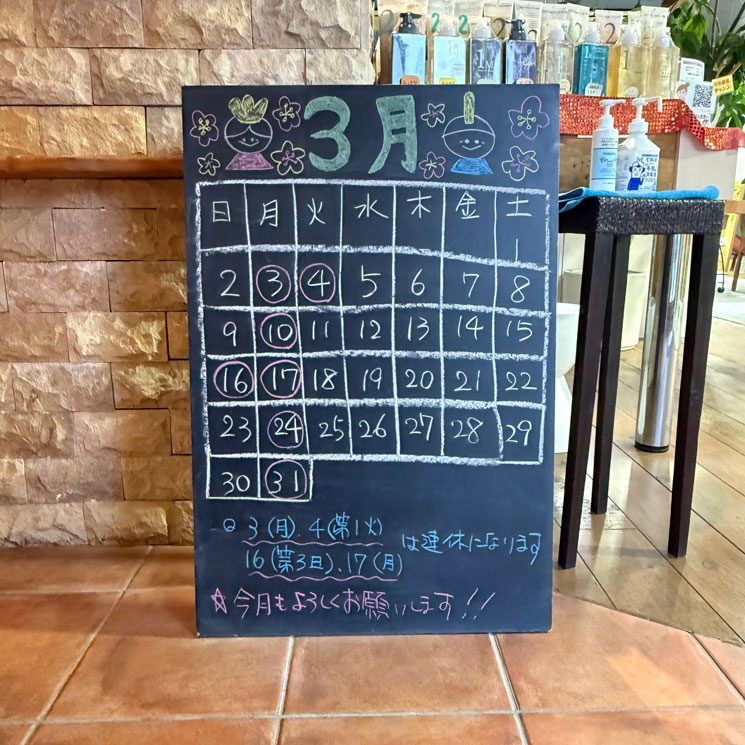 3月
日 月 火 水 木 金 土
1
2 3 4 5 6 7 8
9 10 11 12 13 14 15
16 17 18 19 20 21 22
23 24 25 26 27 28 29
30 31
3(月).4(第1火)
は連休になります
16(第3日)、17(月)
☆今月もよろしくお願いします!!